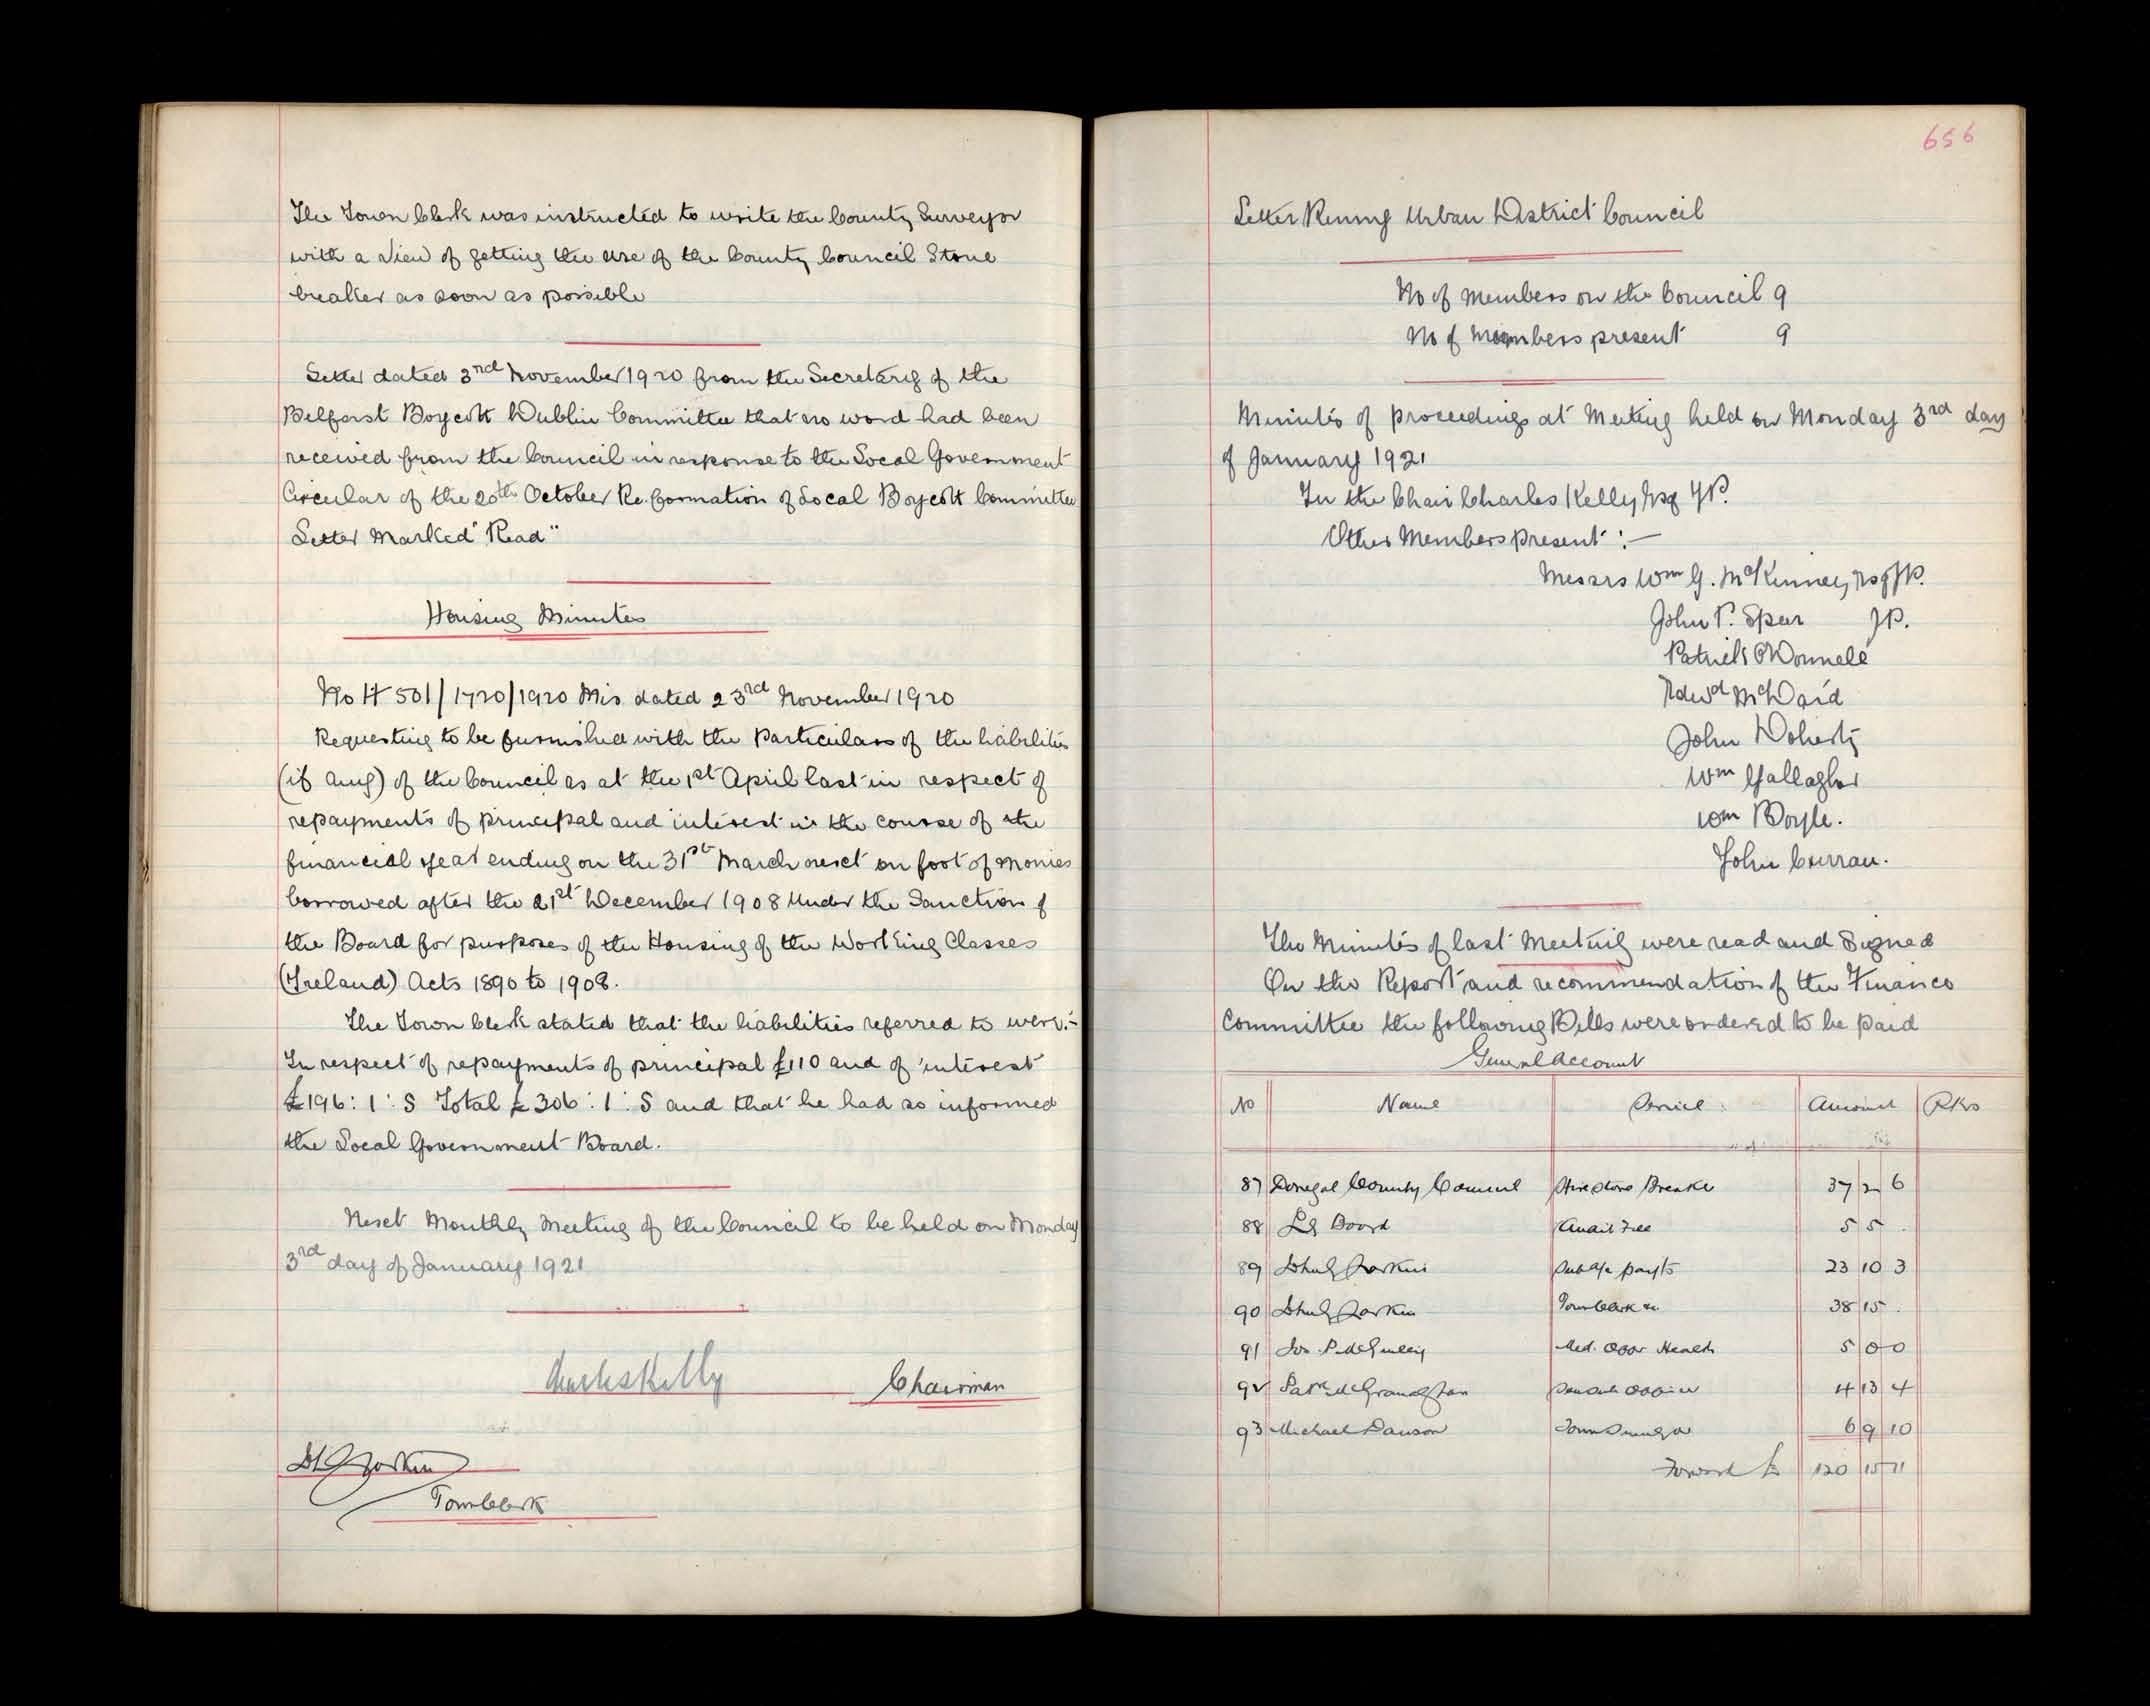 The Town Clerk was instructed to write the County Surveyor
with a view of getting the use of the County Council Stone
breaker as soon as possible
Letter dated 3rd November 1920 from the Secretary of the
Belfast Boycott Dublin Committee that no word had been
received from the Council in response to the Local Government
Circular of the 20th October Re. formation of Local Boycott Committee
Letter Marked "Read"
Housing Minutes
No H 501/1720/1920 Mis dated 23rd November 1920
Requesting to be furnished with the Particulars of the liabilities
(if any) of the Council as at the 1st April last in respect of
repayments of principal and interest in the course of the
financial year ending on the 31st March next on foot of monies
borrowed after the 21st December 1908 under the Sanction of
the Board for purposes of the Housing of the Working Classes
(Ireland) Acts 1890 to 1908.
The Town Clerk stated that the liabilities referred to were:-
In respect of repayments of principal £110 and of interest
£196: 1: 5 Total £306: 1: 5 and that he had so informed
the Local Government Board.
Next Monthly Meeting of the Council to be held on Monday
3rd day of January 1921
Charles Kelly Chairman
Town Clerk
656
Letter Kenny Urban District Council
No of Members on the Council 9
No of Members present 9
Minutes of proceedings at Meeting held on Monday 3rd day
of January 1921
In the Chair Charles Kelly Esq J.P.
Other Members present :-
Messrs Wm G. McKinney Esq J.P.
John P. Speer J.P.
Patrick O'Donnell
Edwd McDaid
John Doherty
Wm Gallagher
Wm Boyle.
John Curran.
The Minutes of last Meeting were read and Signed
On the Report and recommendation of the Finance
Committee the following Bills were ordered to be paid
General Account
No Name Service Amount Rks
87 Donegal County Council Hire Stone Breaker 37 2 6
88 LG Board Audit Fee 5 5 .
89 Larkin Sub a/c payts 23 10 3
90 Larkin Town Clerk &c. 38 15 .
91 Jos. P. Med. Offr Health 5 0 0
92 Officer 4 13 4
93 Michael Dawson Town Surveyor 6 9 10
Forward £ 120 15 11